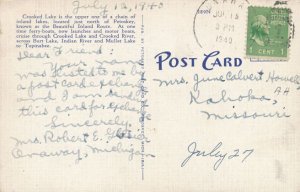 July 12, 1940
Crooked Lake is the upper one of a chain of
inland lakes, located just north of Petoskey,
known as the Beautiful Inland Route. At one
time ferry-boats, now launches and motor boats,
cruise through Crooked Lake and Crooked River,
across Burt Lake, Indian River and Mullet Lake
to Topinabee.
Dear Friend:
Your name
was listed to me by
a post card exchange
and I would
this card for exchange
Sincerely,
Mrs. Robert E.
Onaway, Michigan
POST CARD
JUL 15
PM
1940
1 CENT 1
Mrs. June Calvert Howell
Kahoka,
Missouri
July 27